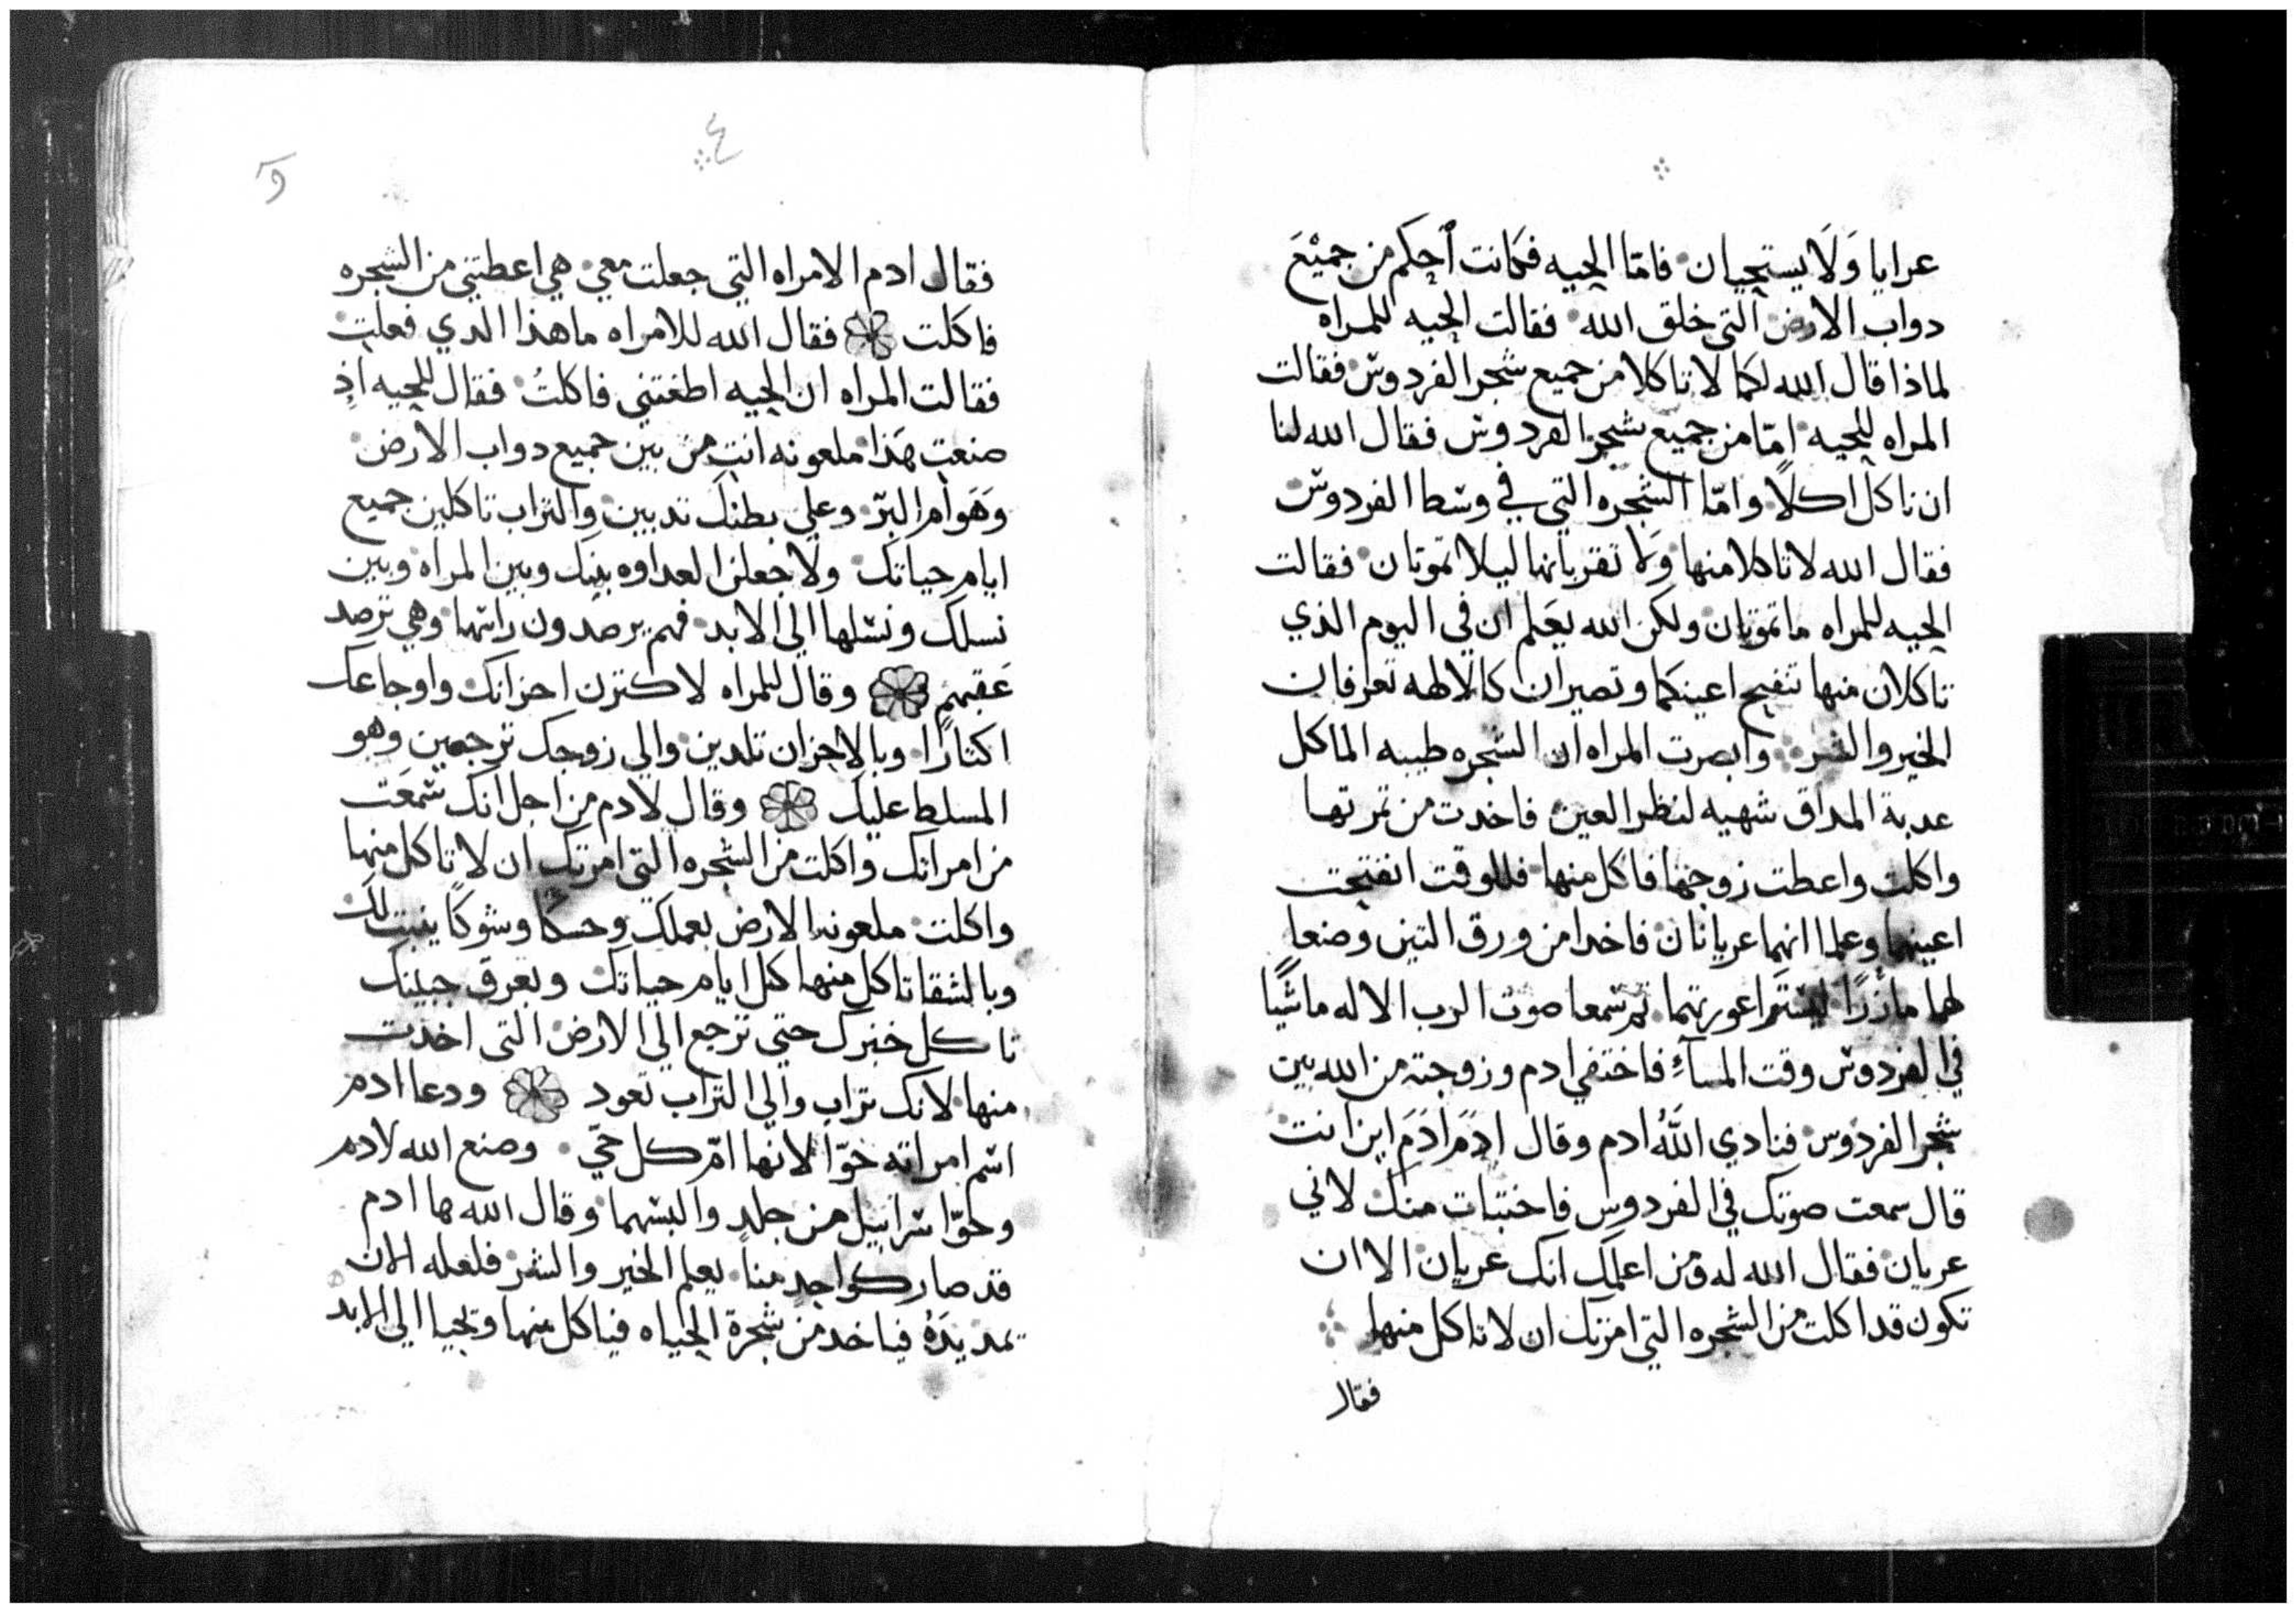 عرايا وَلَا يستحييان فامّا الحيه فكانت أحكم من جميْعَ
دواب الارض التي خلق الله فقالت الحيه للمراه
لماذا قال الله لكما لا تاكلا من جميع شجر الفردوس فقالت
المراه للحيه امّا من جميع شجر الفردوس فقال الله لنا
ان ناكل اكلاً وامّا الشجره التي في وسط الفردوس
فقال الله لا تاكلا منها وَلا تقربانها ليلا تموتان فقالت
الحيه للمراه ما تموتان ولكن الله يعَلم ان في اليوم الذي
تاكلان منها تنفتح اعينكما وتصيران كالالهه تعرفان
الخير والشر وابصرت المراه ان الشجره طيبه الماكل
عدبة المداق شهيه لنظر العين فاخدت من تمرتها
واكلت واعطت زوجها فاكل منها فللوقت انفتحت
اعينهما وعلما انهما عريانان فاخدا من ورق التين وصنعا
لهما مازرًا ليستترا عورتهما ثم سمعا صوت الرب الاله ماشيًا
في الفردوس وقت المسآءِ فاختفي ادم وزوجته من الله بين
شجر الفردوس فنادي اللَّهُ ادم وقال ادَم ادَم اين انت
قال سمعت صوتك في الفردوس فاختبات منك لاني
عريان فقال الله له ومن اعلمك انك عريان الا ان
تكون قد اكلت من الشجره التي امرتك ان لا تاكل منها
فقال
٤
فقال ادم الامراه التي جعلت معي هي اعطتني من الشجره
فاكلت فقال الله للامراه ما هذا الدي فعلتِ
فقالت المراه ان الحيه اطغتني فاكلتُ فقال للحيه اذِ
صنعت هَذا ملعونه انتِ من بين جميع دواب الارض
وَهَوام البرّ وعلي بطنك تدبين والتراب تاكلين جميع
ايام حياتك ولاجعلن العداوه بينك وبين المراه وبين
نسلك ونسلها الي الابد فهم يرصدون راسها وهي ترصد
عَقبهم وقال للمراه لاكترن احزانك واوجاعك
اكتارًا وبالاحزان تلدين والي زوجك ترجعين وهو
المسلط عليك وقال لادم من اجل انك سمعَت
من امراتك واكلت من الشجره التي امرتك ان لا تاكل منها
واكلت ملعونه الارض بعملك وحسكًا وشوكًا ينبت لك
وبالشقا تاكل منها كل ايام حياتك وبعرق جبينك
تاكل خبزك حتي ترجع الي الارض التي اخذت
منها لانك تراب والي التراب تعود ودعا ادم
اسم امراته حوّا لانها امّ كل حيّ وصنع الله لادم
وحوّا سرابيل من جلد والبسهما وقال الله ها ادم
قد صار كواحدٍ منا يعلم الخير والشر فلعله الان
يمد يدَهُ فياخد من شجرة الحياه فياكل منها ويحيا الي الابد